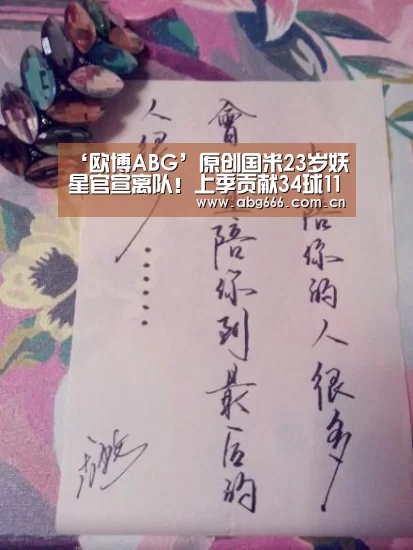 ‘欧博ABG’原创国米23岁妖
星官宣离队！上季贡献34球11
www.abg666.com.cn
陪你的人很多
會
陪你到最后的
人很少......